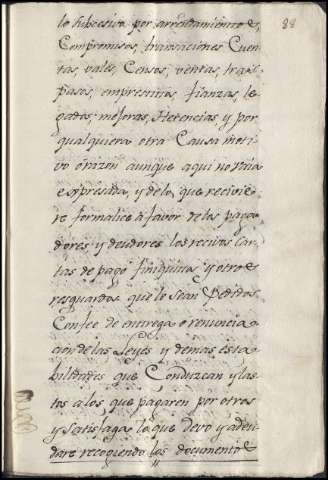 88
lo subcesivo por arrendamientos,
Compromisos, transaciones Cuen
tas, vales, Censos, ventas, tras,,
pasos, emprestitos, fianzas, le
gados, mejoras, Herencias y por
qualquiera otra Causa moti
vo o razon aunque aqui no vaia
expresada, y de lo, que recivie
re formalice a favor de los paga
dores y deudores los recivos Car
tas de pago finiquitos, y otros
resguardos que le sean pedidos
Con fee de entrega o renuncia
cion de las Leyes y demas esta
bilidades que Conduzcan y las
tos a los que pagaren por otros
y satisfaga lo que devo y adeu
dare recogiendo los documentos